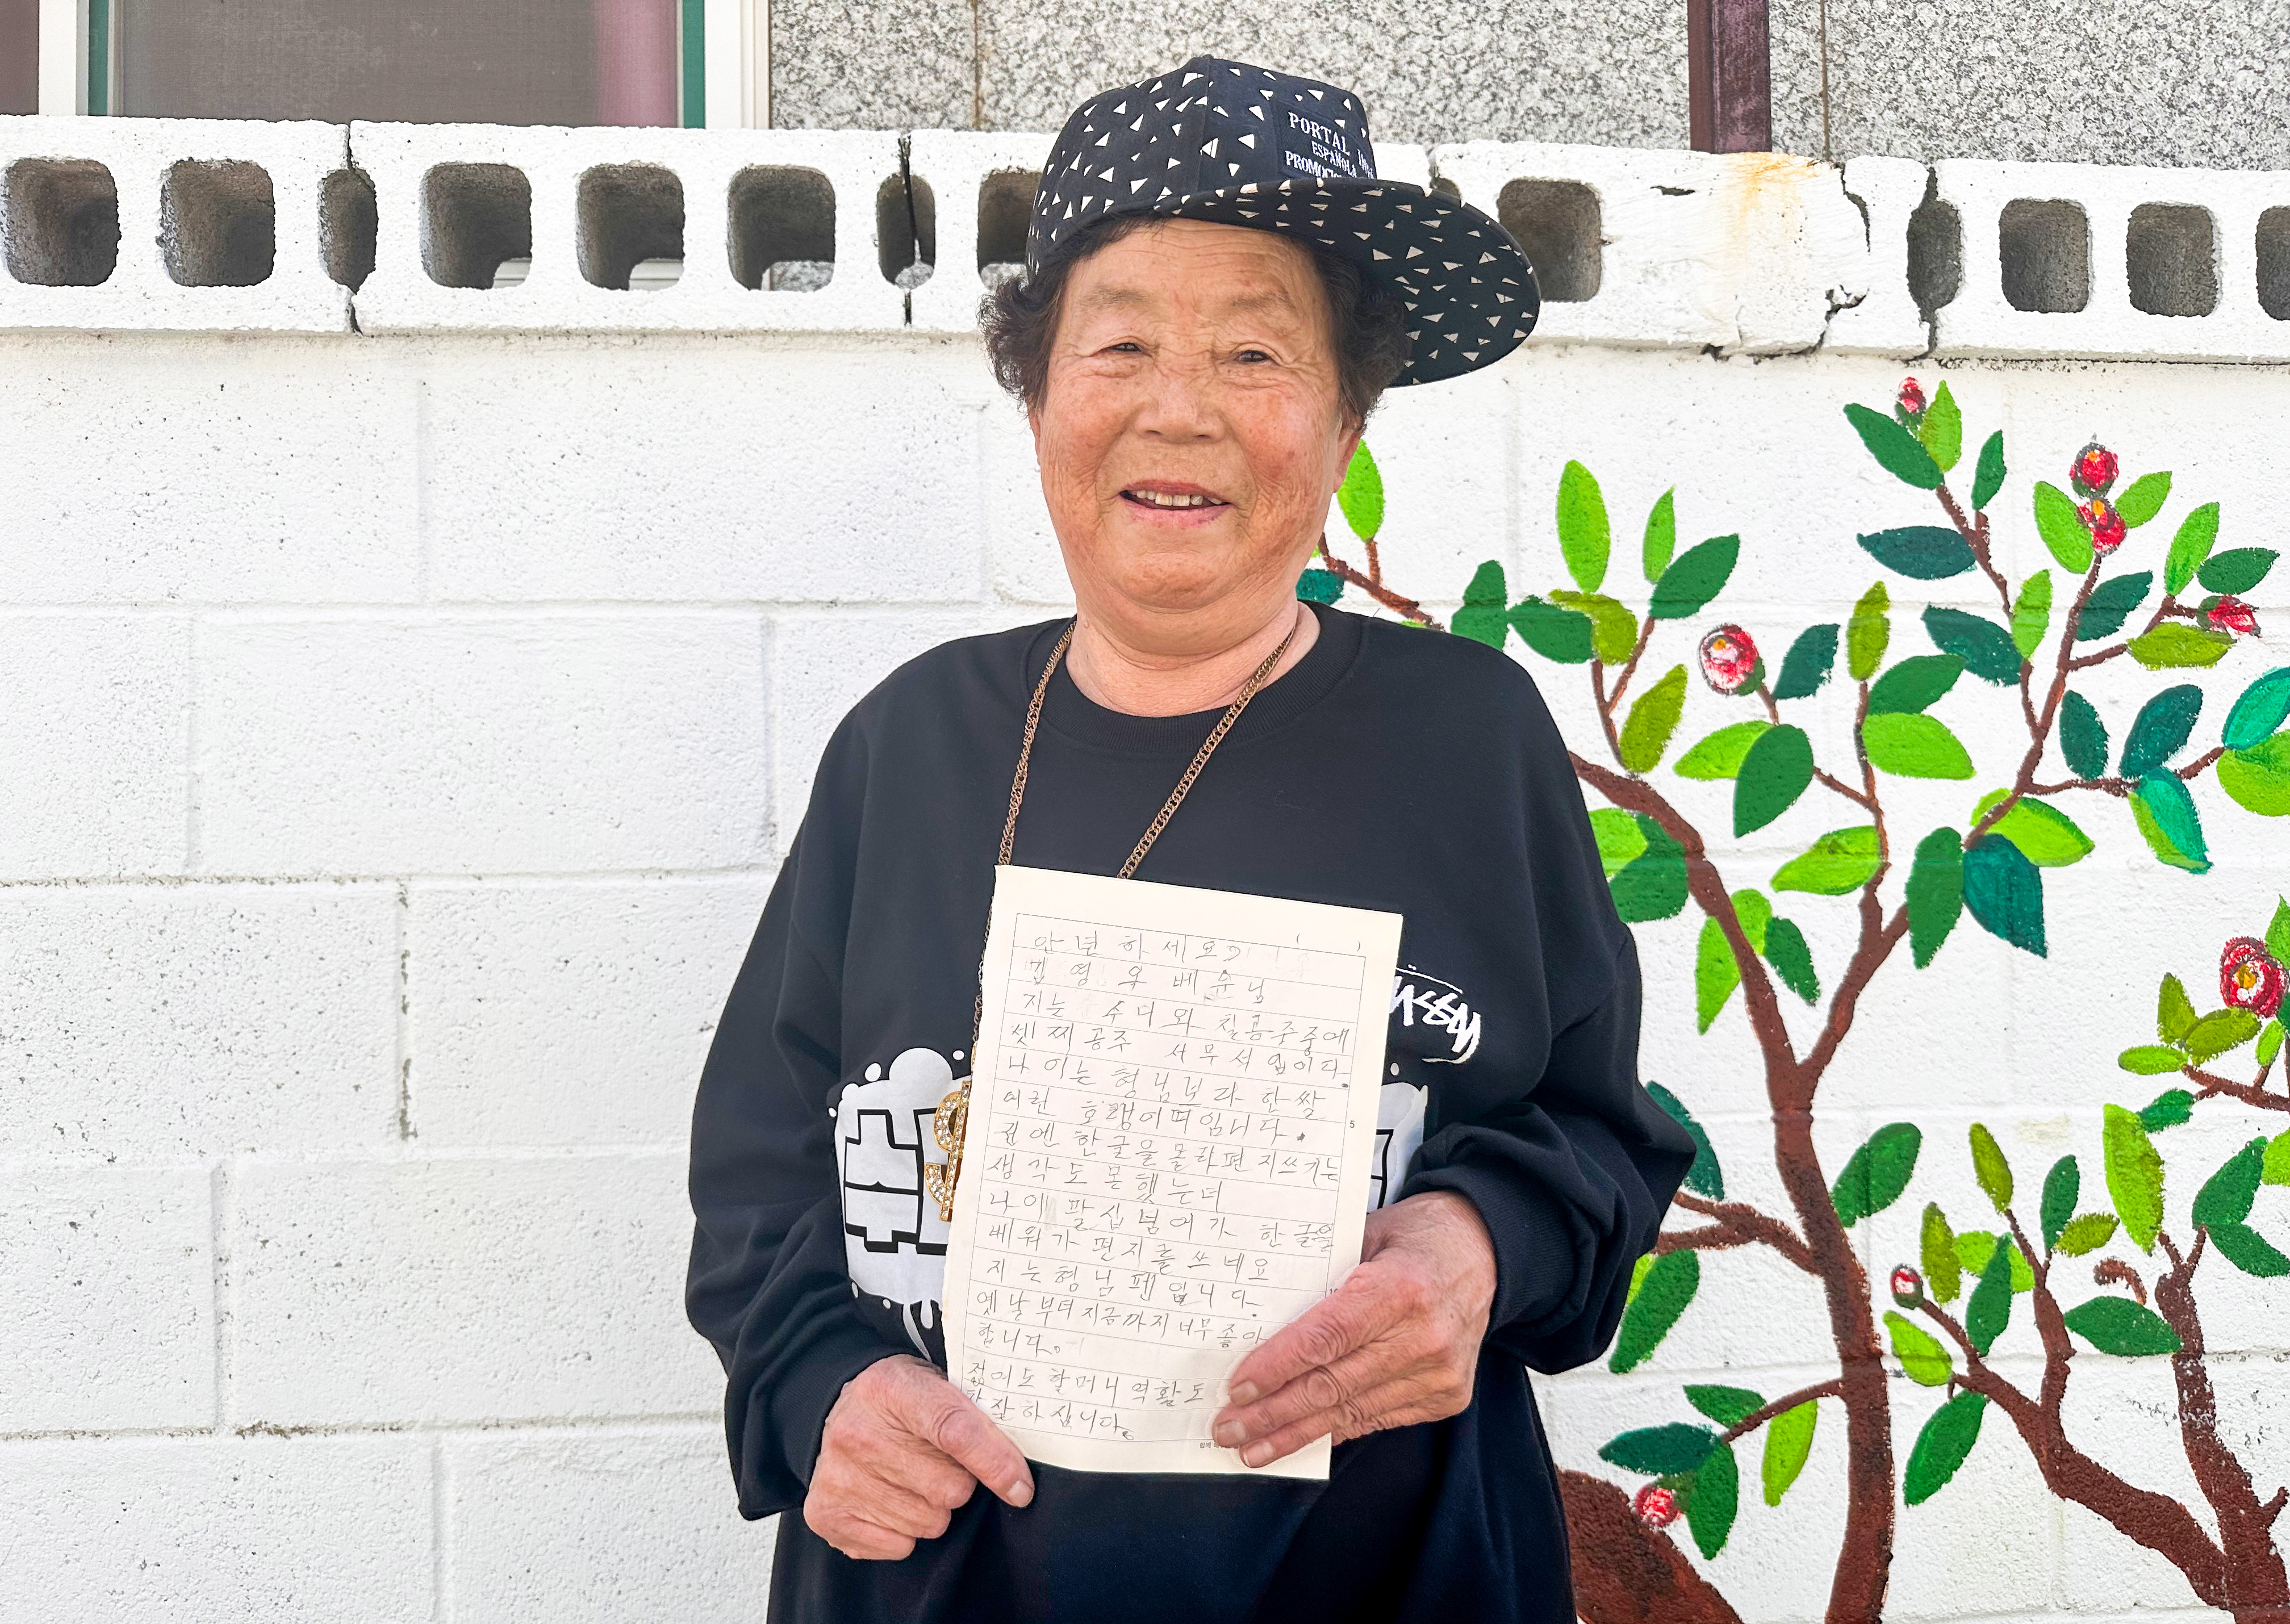 PORTAL
ESPAÑOLA
안녕하세요?
김영옥 베우님
지는 수니와 칠공주중에
셋찌공주 서무석입이다.
나이는 형님보다 한쌀
어린 호랭이띠입니다.
전엔 한글을 몰라편지쓰기는
생각도 못했는데
나이 팔십넘어가 한글을
베워가 편지를 쓰네요
지는형님팬입니다.
옛날부터지금까지너무좋아
합니다.
젊어도 할머니역활도
잘하십니다.
5